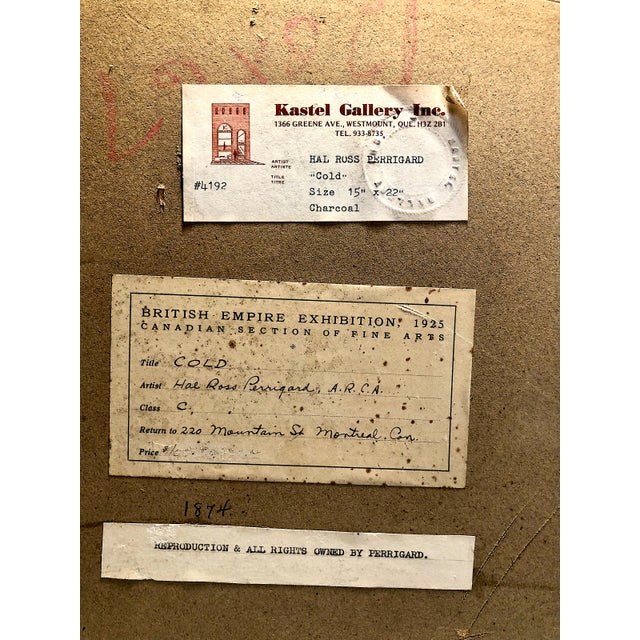 Kastel Gallery Inc.
1366 GREENE AVE., WESTMOUNT, QUE. H3Z 2B1
TEL. 933-8735
ARTIST
ARTISTE
HAL ROSS PERRIGARD
TITLE
TITRE
"Cold"
#4192
Size 15" x 22"
Charcoal
BRITISH EMPIRE EXHIBITION, 1925
CANADIAN SECTION OF FINE ARTS
Title COLD.
Artist Hal Ross Perrigard, A.R.C.A.
Class C.
Return to 220 Mountain St Montreal. Can.
Price
1874.
REPRODUCTION & ALL RIGHTS OWNED BY PERRIGARD.